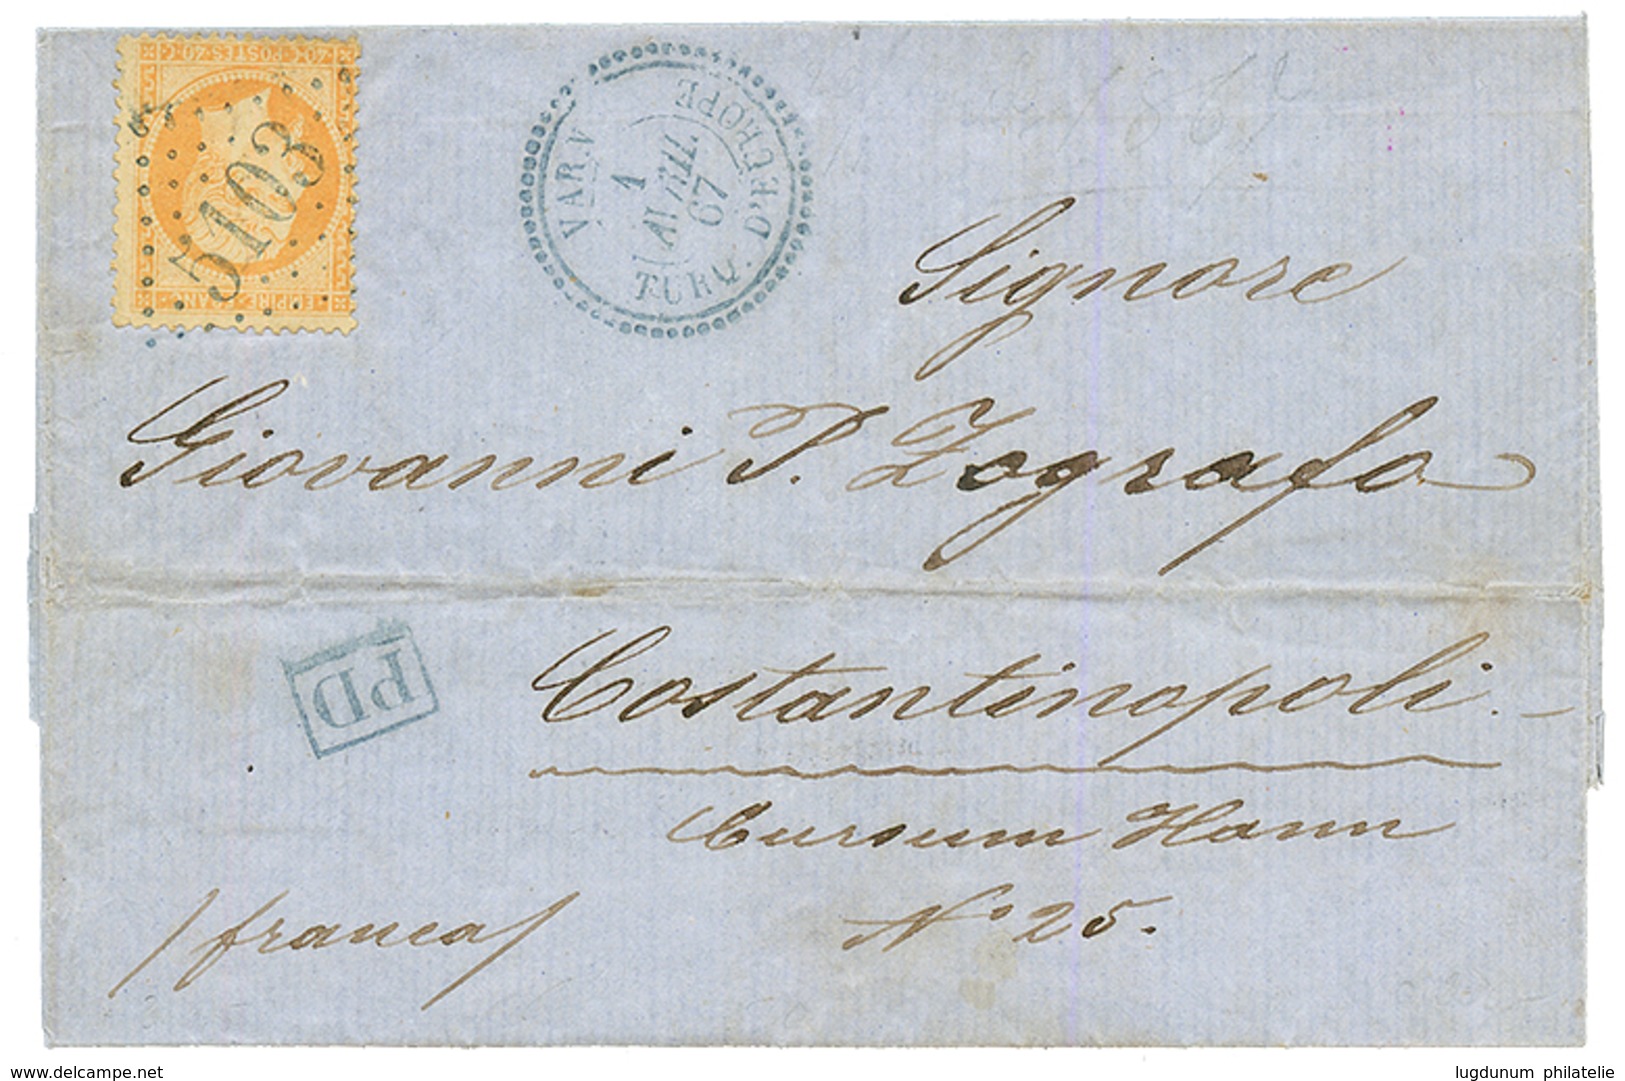 40·C·POSTES·40·C
5103
EMPIRE FRANC
VARNA
1
AVRIL
67
TURQ. D'EUROPE
Signore
Giovanni P. Zografo
PD
Costantinopoli.
Cursum Hann
N° 25.
/franca/
delcampe.net
lugdunum philatelie